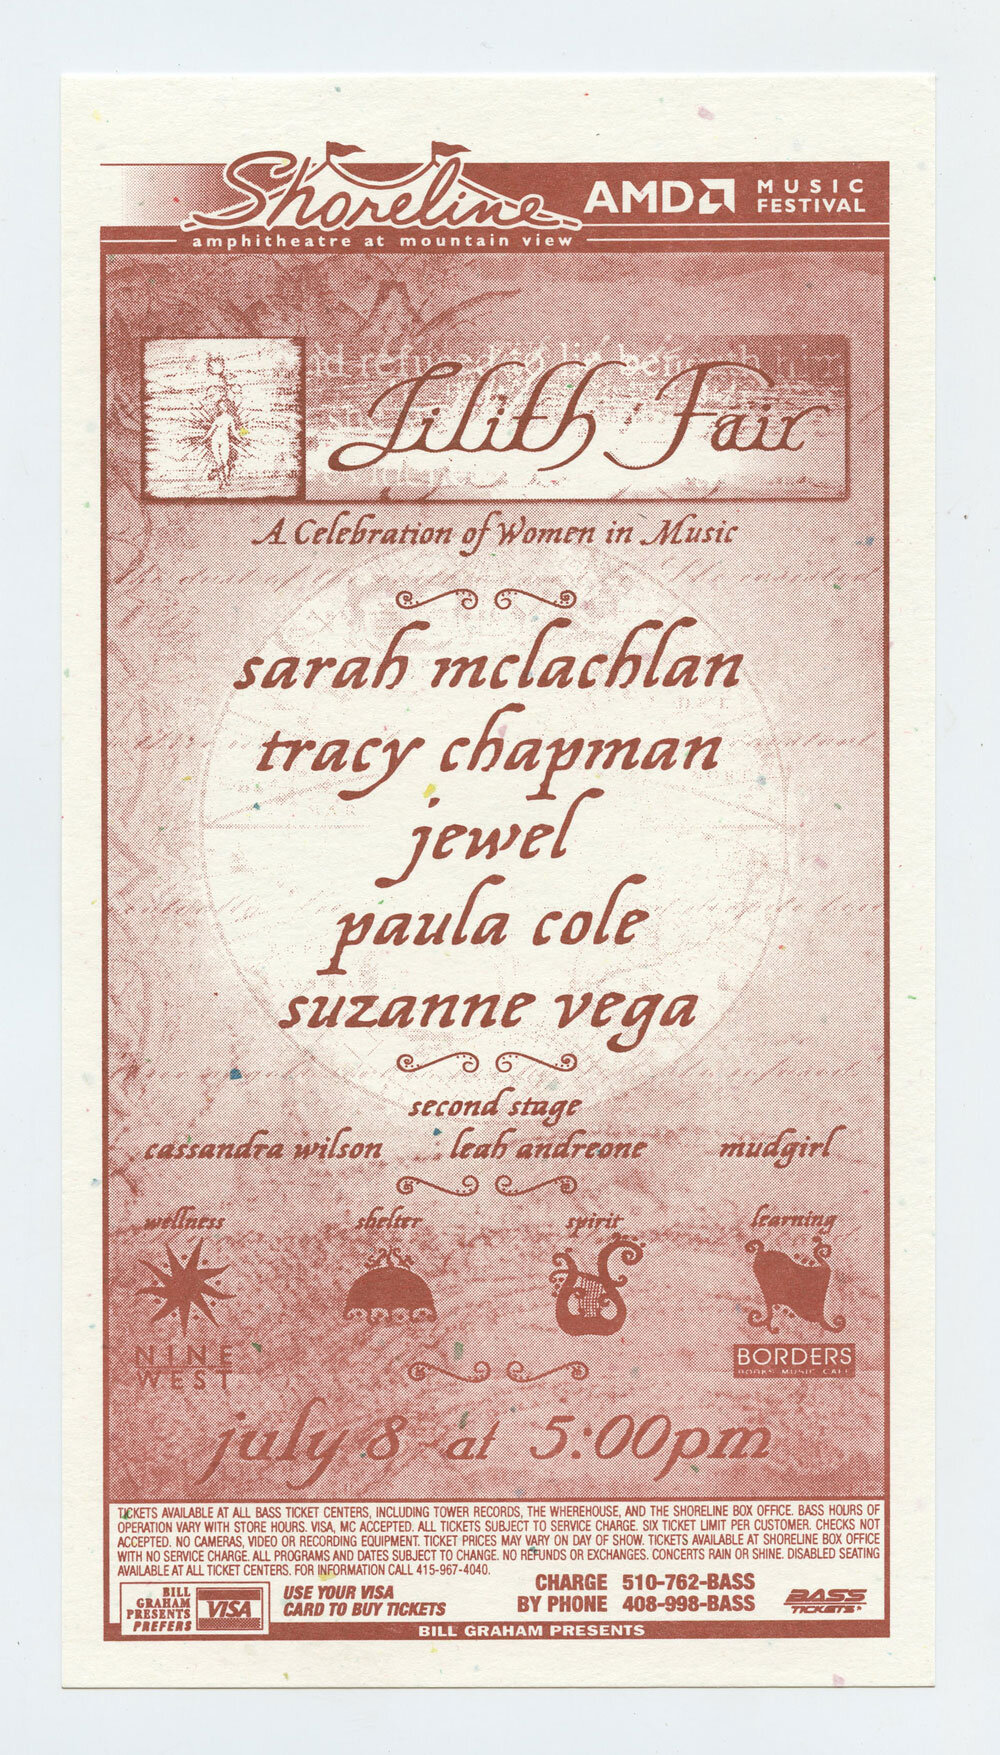 Shoreline
amphitheatre at mountain view
AMD MUSIC
FESTIVAL
refused to lie beneath him
Lilith Fair
A Celebration of Women in Music
sarah mclachlan
tracy chapman
jewel
paula cole
suzanne vega
second stage
cassandra wilson leah andreone mudgirl
wellness shelter spirit learning
NINE
WEST
BORDERS
BOOKS MUSIC CAFE
july 8 at 5:00pm
TICKETS AVAILABLE AT ALL BASS TICKET CENTERS, INCLUDING TOWER RECORDS, THE WHEREHOUSE, AND THE SHORELINE BOX OFFICE. BASS HOURS OF
OPERATION VARY WITH STORE HOURS. VISA, MC ACCEPTED. ALL TICKETS SUBJECT TO SERVICE CHARGE. SIX TICKET LIMIT PER CUSTOMER. CHECKS NOT
ACCEPTED. NO CAMERAS, VIDEO OR RECORDING EQUIPMENT. TICKET PRICES MAY VARY ON DAY OF SHOW. TICKETS AVAILABLE AT SHORELINE BOX OFFICE
WITH NO SERVICE CHARGE. ALL PROGRAMS AND DATES SUBJECT TO CHANGE. NO REFUNDS OR EXCHANGES. CONCERTS RAIN OR SHINE. DISABLED SEATING
AVAILABLE AT ALL TICKET CENTERS. FOR INFORMATION CALL 415-967-4040.
BILL
GRAHAM
PRESENTS
PREFERS
VISA
USE YOUR VISA
CARD TO BUY TICKETS
CHARGE 510-762-BASS
BY PHONE 408-998-BASS
BASS
TICKETS
BILL GRAHAM PRESENTS